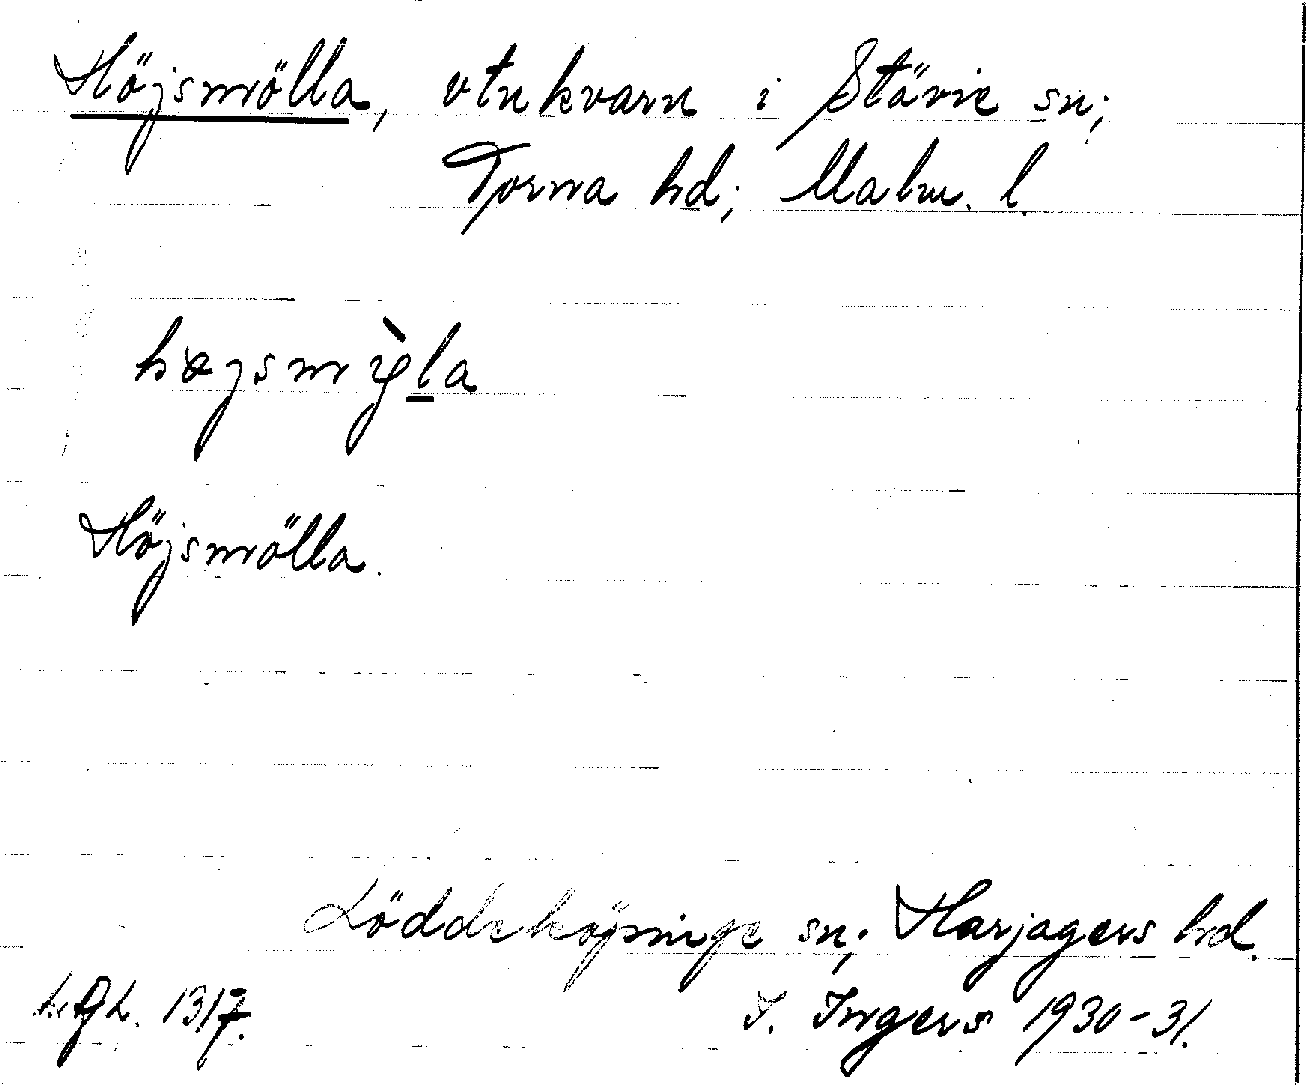 Höjsmölla, vtnkvarn i Stävie sn;
Torna hd; Malm. l.
Höjsmölla.
Löddeköpinge sn; Harjagers hd.
LGL. 1317. I. Ingers 1930-31.